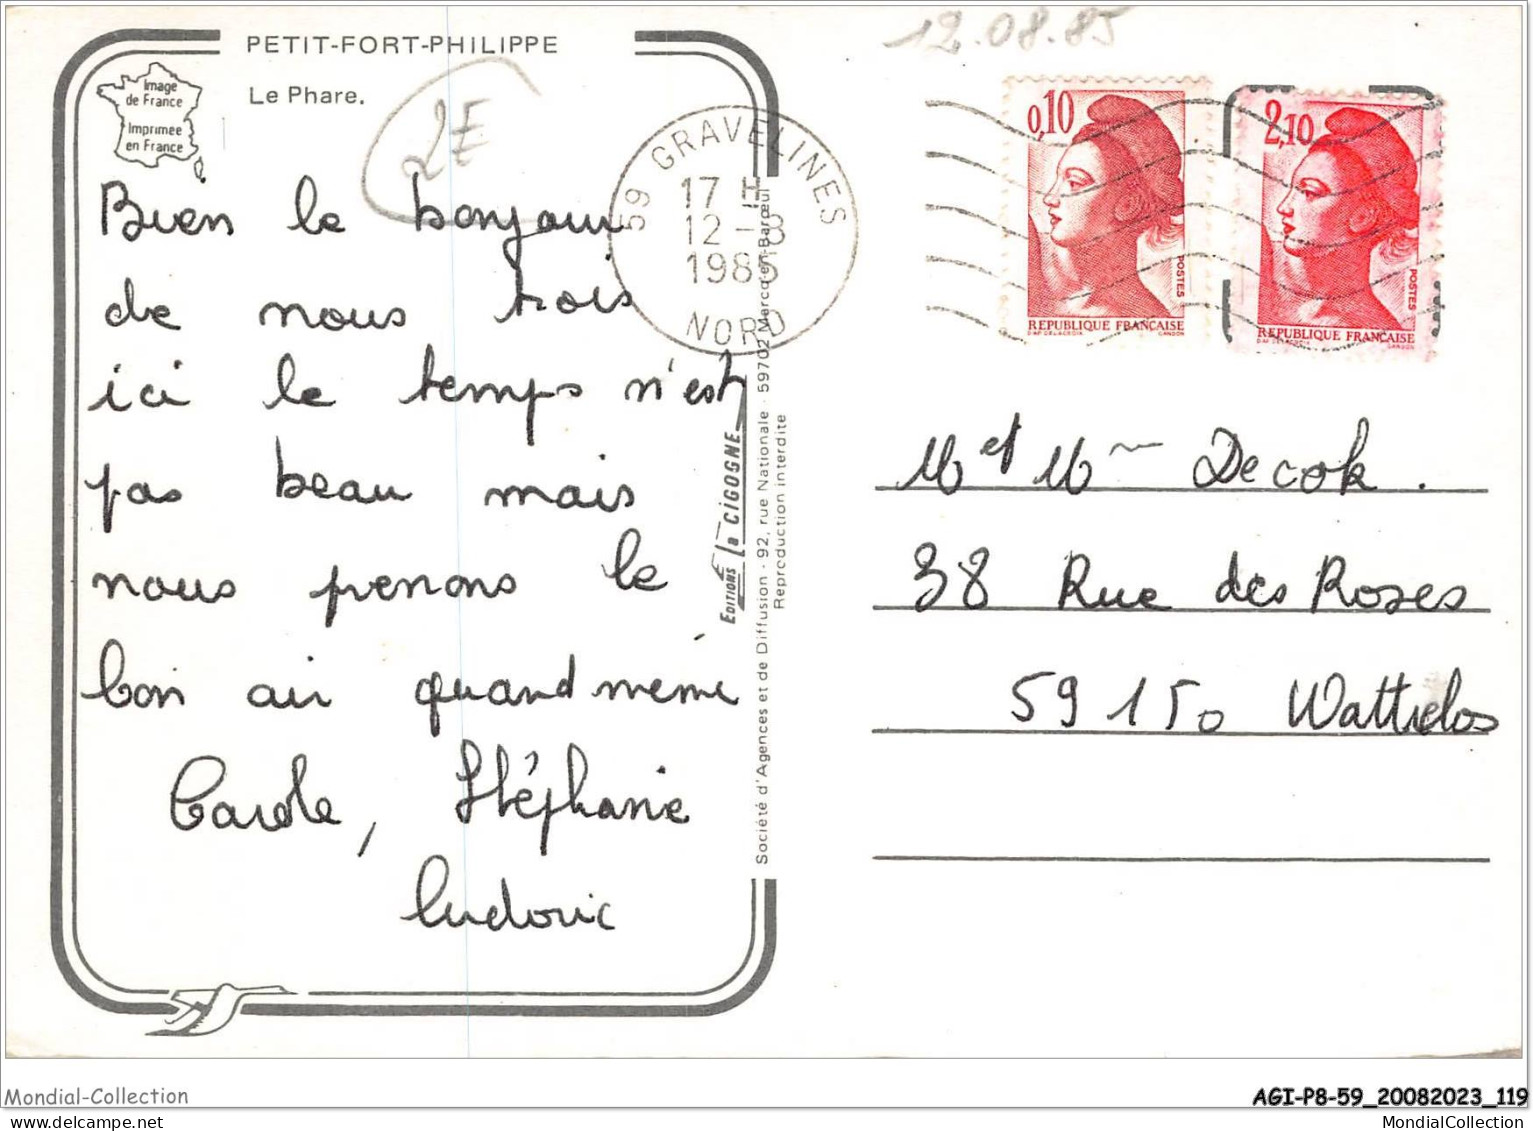 PETIT-FORT-PHILIPPE
Le Phare.
Image
de France
Imprimée
en France
2E
12.08.85
59 GRAVELINES
17 H
12-8
1985
NORD
0,10
POSTES
REPUBLIQUE FRANÇAISE
D'AP. DELACROIX GANDON
2,10
POSTES
REPUBLIQUE FRANÇAISE
D'AP. DELACROIX GANDON
Bien le bonjour
de nous trois
ici le temps n'est
pas beau mais
nous prenons le
bon air quand même
Carole, Stéphanie
Ludovic
EDITIONS La CIGOGNE
Société d'Agences et de Diffusion - 92, rue Nationale - 59702 Marcq-en-Barœul
Reproduction interdite
M et Mme Decok.
38 Rue des Roses
59150 Wattrelos
Mondial-Collection
AGI-P8-59_20082023_119
MondialCollection